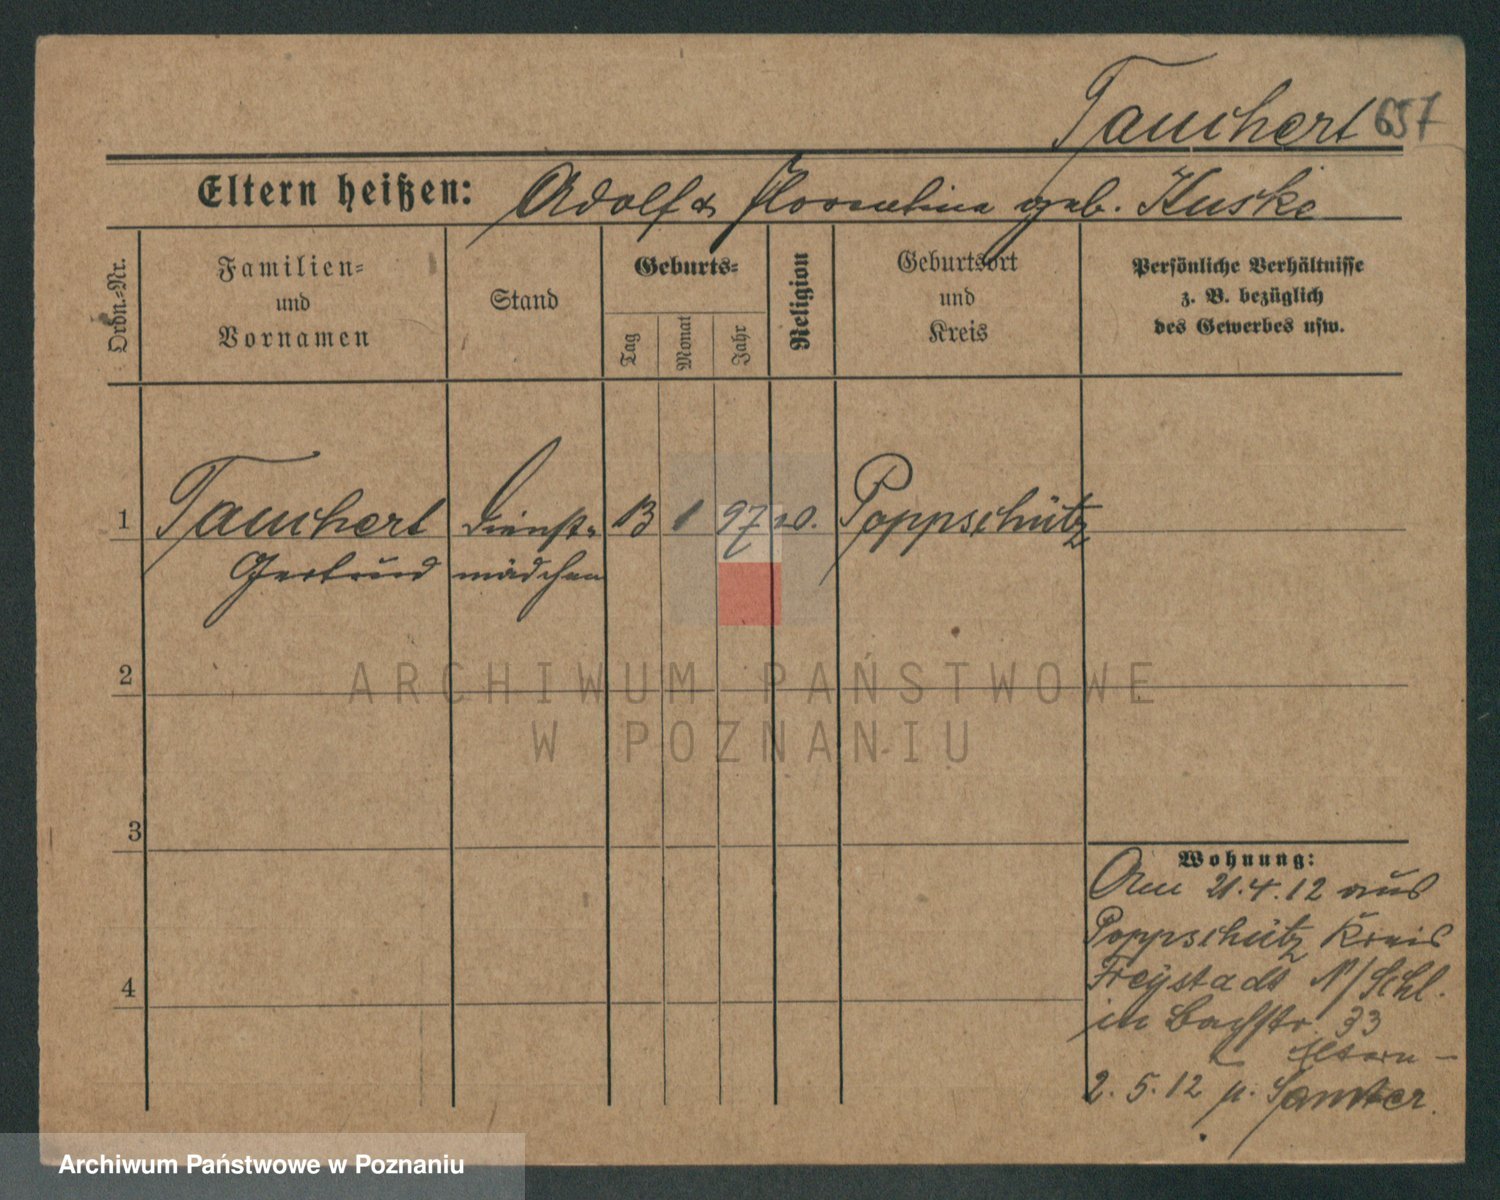 Tauchert 657
Eltern heißen: Adolf & Florentine geb. Huske
Ordn.-Nr.
Familien-
und
Vornamen
Stand
Geburts-
Tag
Monat
Jahr
Religion
Geburtsort
und
Kreis
Persönliche Verhältnisse
z. B. bezüglich
des Gewerbes usw.
1 Tauchert Dienst- 13 1 97 Poppschütz
Gertrud mädchen
2
ARCHIWUM PAŃSTWOWE
W POZNANIU
3
4
Wohnung:
Am 21.4.12 aus
Poppschütz Kreis
Freystadt N/Schl.
in Bachstr. 33
Eltern –
2.5.12 n. Samter.
Archiwum Państwowe w Poznaniu